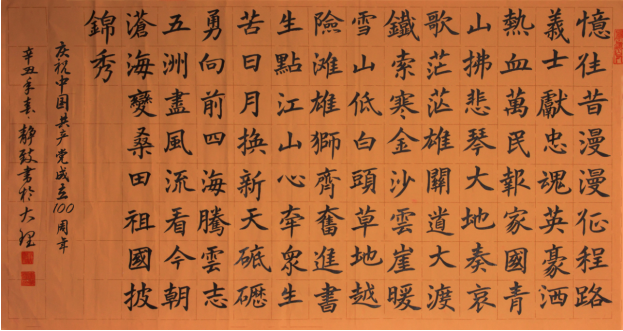 憶往昔漫漫征程路
義士獻忠魂英豪洒
熱血萬民報家國青
山拂悲琴大地奏哀
歌茫茫雄關道大渡
鐵索寒金沙雲崖暖
雪山低白頭草地越
險滩雄獅齊奮進書
生點江山心牵衆生
苦日月換新天砥礪
勇向前四海騰雲志
五洲盡風流看今朝
滄海變桑田祖國披
錦秀
庆祝中国共产党成立100周年
辛丑年春静致書於大理